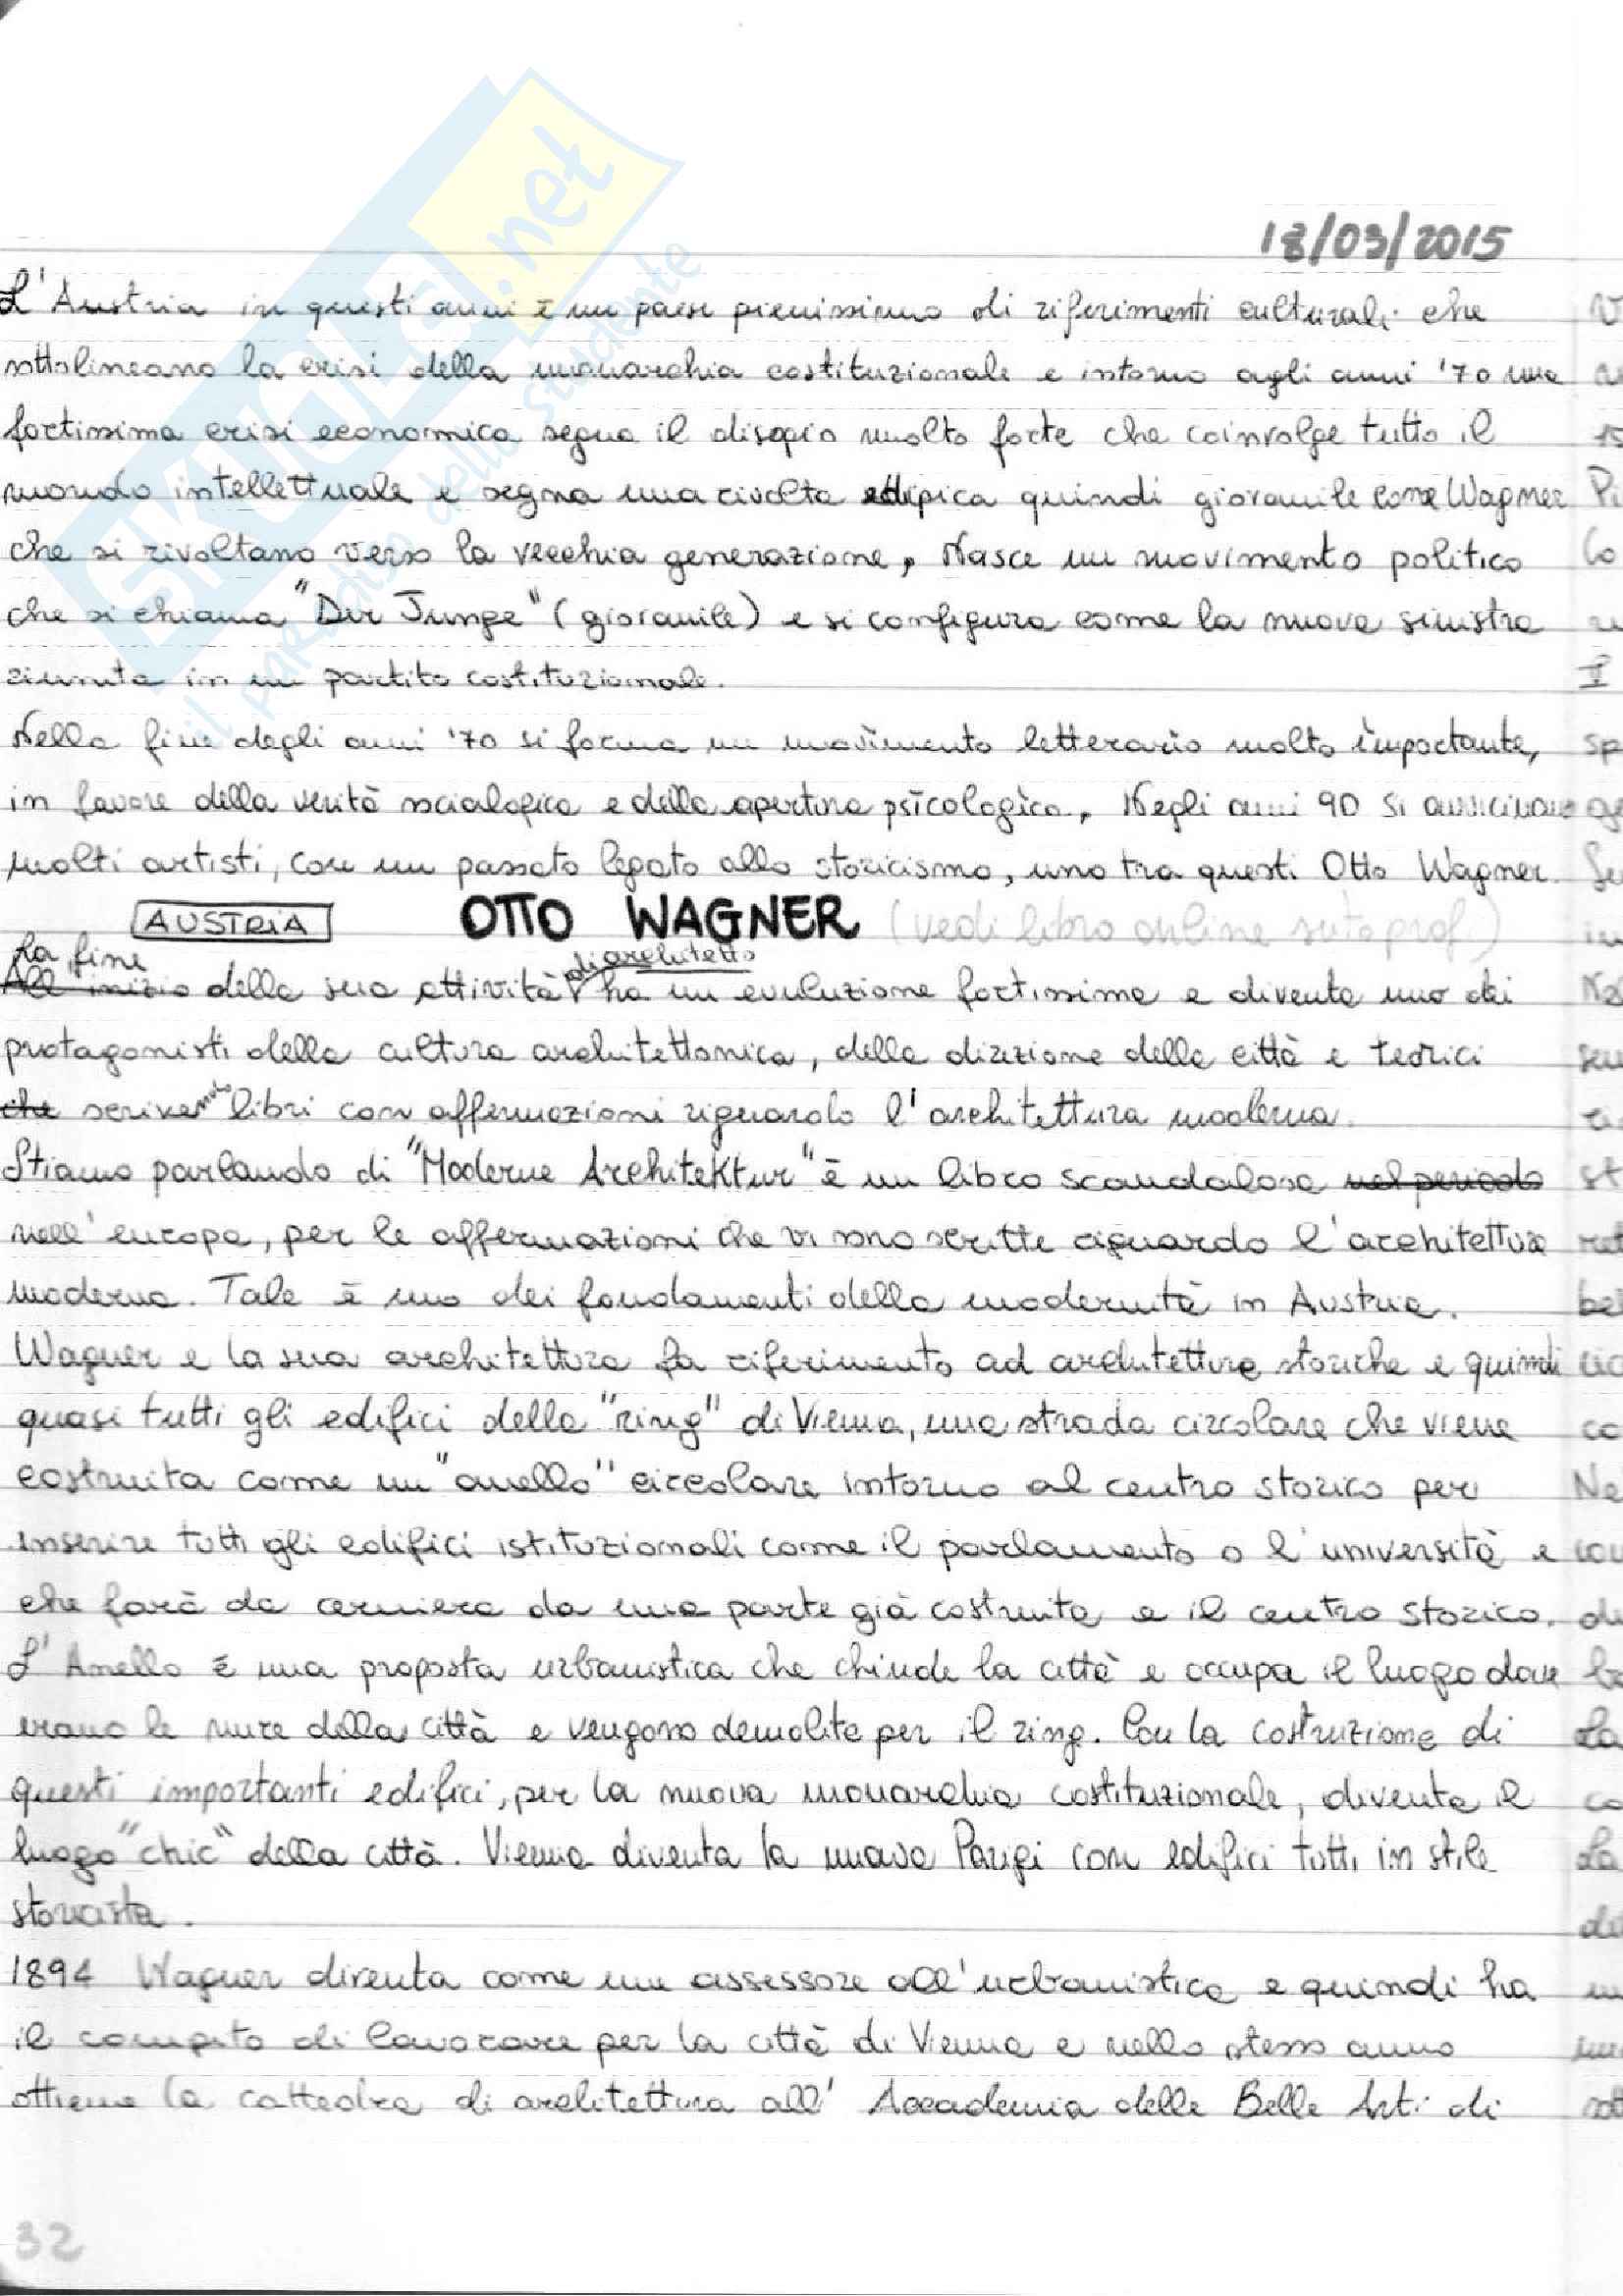 18/03/2015
L'Austria in questi anni è un paese pienissimo di riferimenti culturali che
sottolineano la crisi della monarchia costituzionale e intorno agli anni '70 una
fortissima crisi economica segna il disagio molto forte che coinvolge tutto il
mondo intellettuale e segna una rivolta edipica quindi giovanile come Wagner
che si rivoltano verso la vecchia generazione, Nasce un movimento politico
che si chiama "Der Junge" (giovanile) e si configura come la nuova sinistra
riunita in un partito costituzionale.
Nella fine degli anni '70 si forma un movimento letterario molto importante,
in favore della verità sociologica e della apertura psicologica, Negli anni 90 si avvicinano
molti artisti, con un passato legato allo storicismo, uno tra questi Otto Wagner.
AUSTRIA OTTO WAGNER (vedi libro online sito prof.)
La fine di architetto
All'inizio della sua attività ha un evoluzione fortissima e diventa uno dei
protagonisti della cultura architettonica, della direzione della città e teorici
che scrivendo libri con affermazioni riguardo l'architettura moderna.
Stiamo parlando di "Moderne Architektur" è un libro scandaloso nel periodo
nell'europa, per le affermazioni che vi sono scritte riguardo l'architettura
moderna. Tale è uno dei fondamenti della modernità in Austria.
Wagner e la sua architettura fa riferimento ad architetture storiche e quindi
quasi tutti gli edifici della "ring" di Vienna, una strada circolare che viene
costruita come un "anello" circolare intorno al centro storico per
inserire tutti gli edifici istituzionali come il parlamento o l'università e
che farà da cerniera da una parte già costruita e il centro storico.
L'Anello è una proposta urbanistica che chiude la città e occupa il luogo dove
erano le mura della città e vengono demolite per il ring. Con la costruzione di
questi importanti edifici, per la nuova monarchia costituzionale, diventa il
luogo "chic" della città. Vienna diventa la nuova Parigi con edifici tutti in stile
storicista.
1894 Wagner diventa come un assessore all'urbanistica e quindi ha
il compito di lavorare per la città di Vienna e nello stesso anno
ottiene la cattedra di architettura all'Accademia delle Belle Arti di
32
SKUOLA.net
il paradiso dello studente